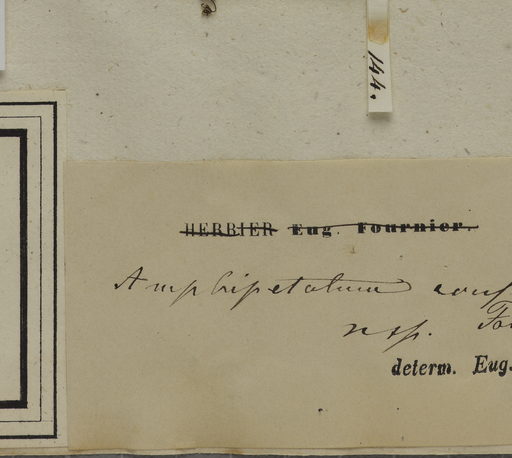 144.
HERBIER Eug. Fournier.
Amphipetalum
n. sp. Fo
determ. Eug.